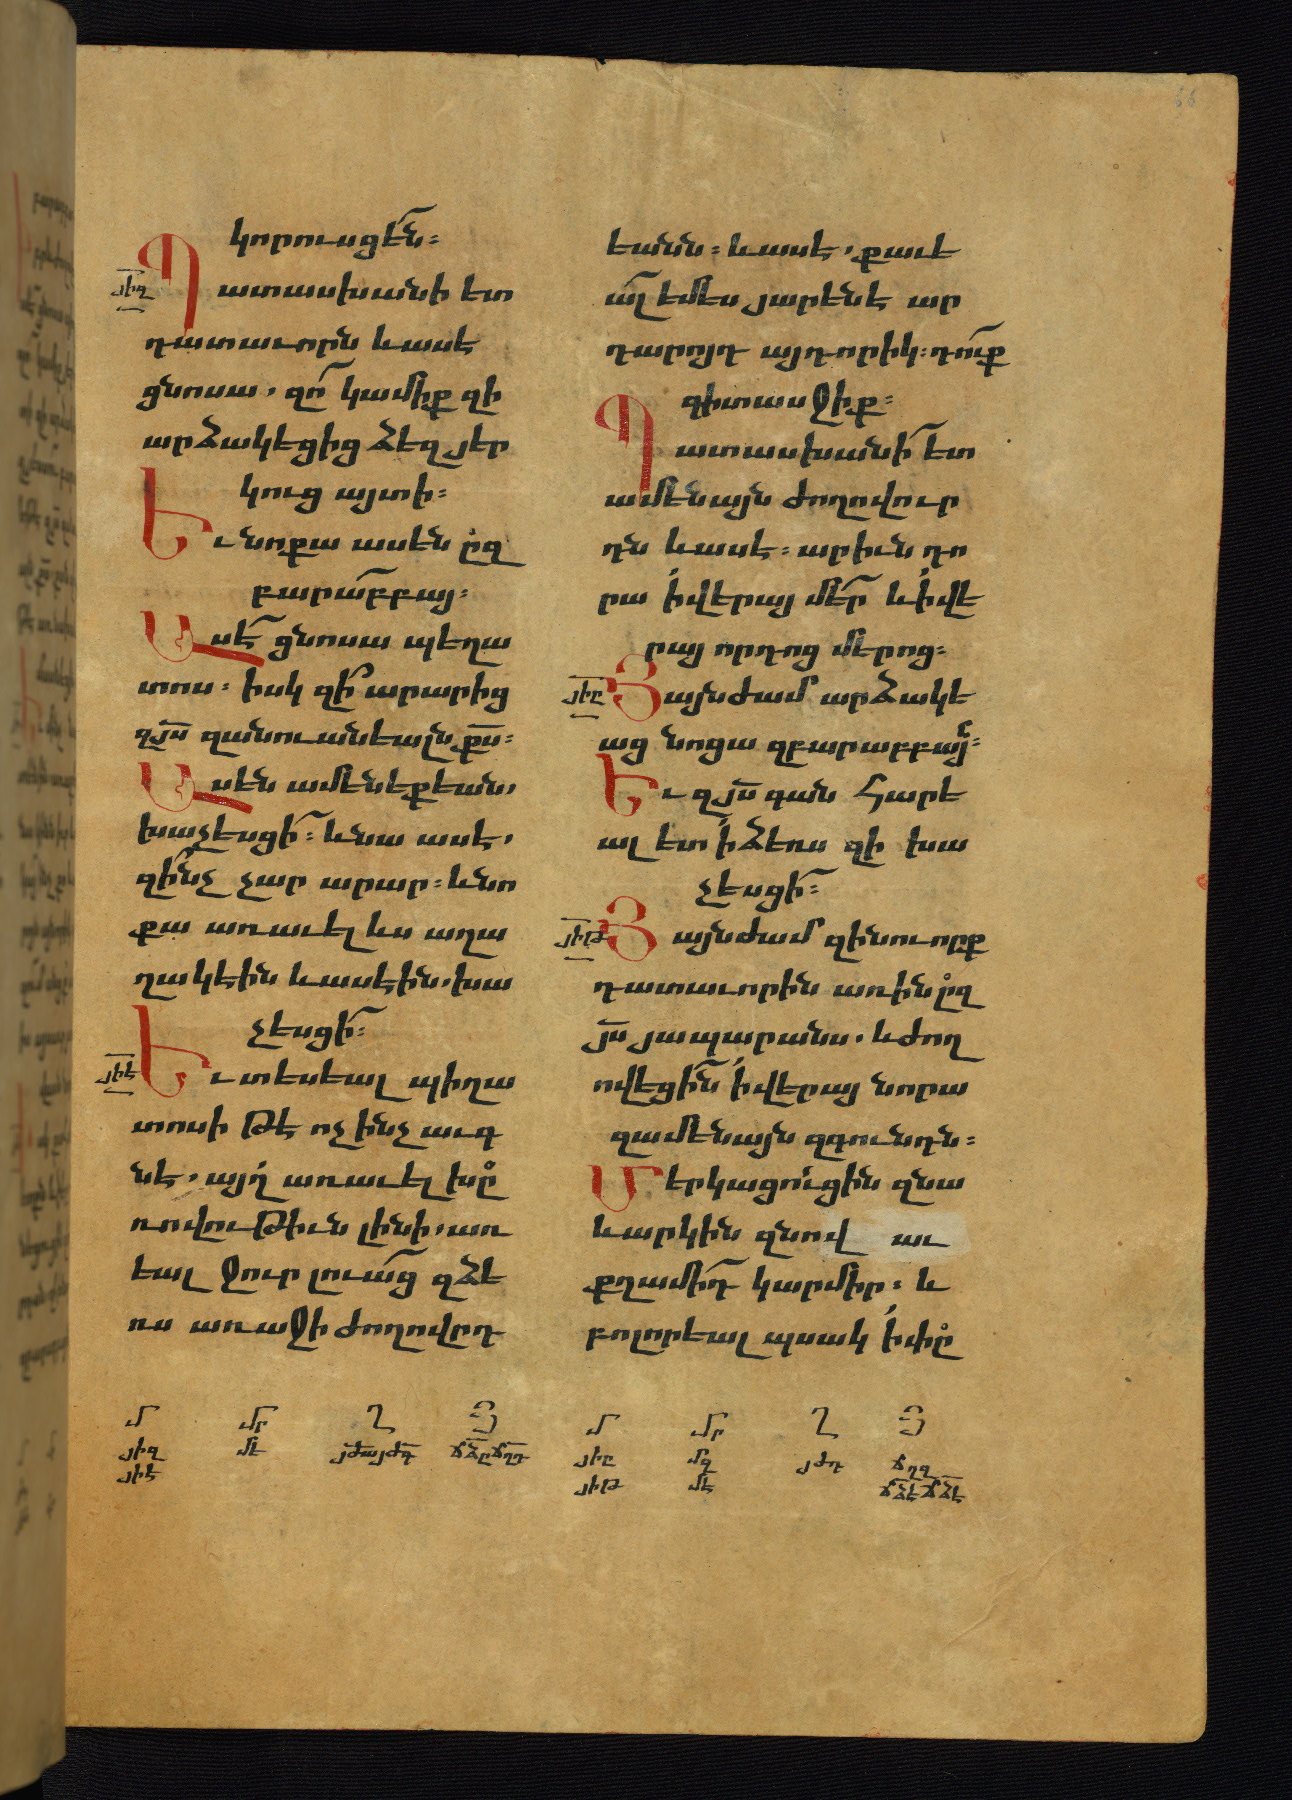 66
կորուսցեն։
յիզ
Պատասխանի ետ
դատաւորն և ասէ
ցնոսա, զո՞ կամիք զի
արձակեցից ձեզ յեր
կուց այտի։
Եւ նոքա ասեն ըզ
բարաբբայ։
Ասէ ցնոսա պեղա
տոս։ իսկ զի՞ արարից
զյս զանուանեալն քս։
Ասեն ամենեքեան,
խաչեսցի։ և նա ասէ,
զի՞նչ չար արար։ և նո
քա առաւել ևս աղա
ղակէին և ասէին, խա
չեսցի։
յիէ
Եւ տեսեալ պիղա
տոսի թէ ոչ ինչ աւգ
նէ, այղ առաւել խը
ռովութիւն լինի, առ
եալ ջուր լուաց զձե
ռս առաջի ժողովըդ
եանն։ և ասէ, քաւե
ալ եմ ես յարենէ ար
դարոյդ այդորիկ։ դուք
գիտասջիք։
Պատասխանի ետ
ամենայն ժողովուր
դն և ասէ։ արիւն դո
րա ի վերայ մեր և ի վե
րայ որդոց մերոց։
յիը
Յայնժամ արձակե
աց նոցա զբարաբբայ։
Եւ զյս գան հարե
ալ ետ ի ձեռս զի խա
չեսցի։
յիթ
Յայնժամ զինուորք
դատաւորին առին ըզ
յս յապարանս, և ժող
ովեցին ի վերայ նորա
զամենայն զգունդն։
Մերկացուցին զնա
և արկին զնով աւ
քղամիդ կարմիր։ և
բոլորեալ պսակ ի փը
Մ Մր Ղ Յ
յիզ մե յժայժգ ճձըճղդ
յիէ
Մ Մր Ղ Յ
յիը մզ յժդ ճղզ
յիթ մէ ճձէճձէ